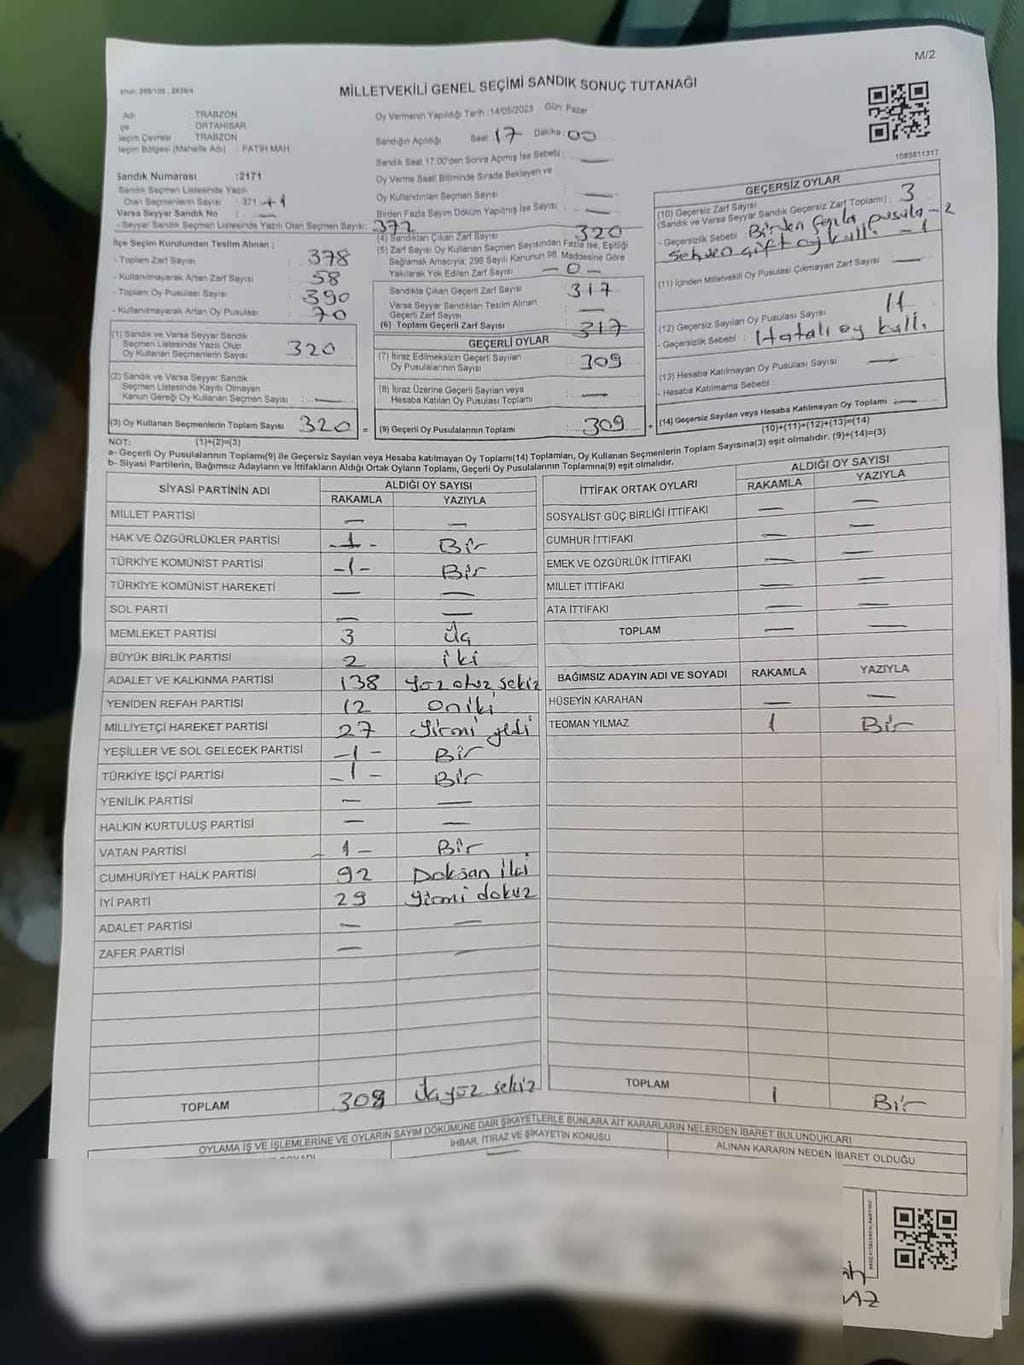 M/2
MİLLETVEKİLİ GENEL SEÇİMİ SANDIK SONUÇ TUTANAĞI
1083811317
: TRABZON
: ORTAHİSAR
Seçim Çevresi : TRABZON
Seçim Bölgesi (Mahalle Adı) : FATİH MAH.
Sandık Numarası :2171
Sandık Seçmen Listesinde Yazılı
Olan Seçmenlerin Sayısı : 371 +1
Varsa Seyyar Sandık No —
- Seyyar Sandık Seçmen Listesinde Yazılı Olan Seçmen Sayısı: 372
İlçe Seçim Kurulundan Teslim Alınan ;
- Toplam Zarf Sayısı : 378
- Kullanılmayarak Artan Zarf Sayısı : 58
- Toplam Oy Pusulası Sayısı : 390
- Kullanılmayarak Artan Oy Pusulası : 70
(1) Sandık ve Varsa Seyyar Sandık
Seçmen Listesinde Yazılı Olup
Oy Kullanan Seçmenlerin Sayısı : 320
(2) Sandık ve Varsa Seyyar Sandık
Seçmen Listesinde Kayıtlı Olmayan
Kanun Gereği Oy Kullanan Seçmen Sayısı : —
(3) Oy Kullanan Seçmenlerin Toplam Sayısı 320 =
Oy Vermenin Yapıldığı Tarih : 14/05/2023 Gün: Pazar
Sandığın Açıldığı Saat : 17 Dakika : 00
Sandık Saat 17.00'den Sonra Açılmış İse Sebebi : —
Oy Verme Saati Bitiminde Sırada Bekleyen ve
Oy Kullandırılan Seçmen Sayısı : —
Birden Fazla Sayım Döküm Yapılmış İse Sayısı : —
(4) Sandıktan Çıkan Zarf Sayısı : 320
(5) Zarf Sayısı Oy Kullanan Seçmen Sayısından Fazla İse, Eşitliği
Sağlamak Amacıyla; 298 Sayılı Kanunun 98. Maddesine Göre
Yakılarak Yok Edilen Zarf Sayısı : —0—
Sandıkta Çıkan Geçerli Zarf Sayısı : 317
Varsa Seyyar Sandıktan Teslim Alınan
Geçerli Zarf Sayısı : —
(6) Toplam Geçerli Zarf Sayısı : 317
GEÇERLİ OYLAR
(7) İtiraz Edilmeksizin Geçerli Sayılan
Oy Pusulalarının Sayısı : 309
(8) İtiraz Üzerine Geçerli Sayılan veya
Hesaba Katılan Oy Pusulası Toplamı : —
(9) Geçerli Oy Pusulalarının Toplamı : 309 +
GEÇERSİZ OYLAR
(10) Geçersiz Zarf Sayısı
(Sandık ve Varsa Seyyar Sandık Geçersiz Zarf Toplamı) : 3
- Geçersizlik Sebebi : Birden fazla pusula - 2
çift oy kull. - 1
(11) İçinden Milletvekili Oy Pusulası Çıkmayan Zarf Sayısı —
(12) Geçersiz Sayılan Oy Pusulası Sayısı : 11
- Geçersizlik Sebebi : Hatalı oy kull.
(13) Hesaba Katılmayan Oy Pusulası Sayısı : —
- Hesaba Katılmama Sebebi :
(14) Geçersiz Sayılan veya Hesaba Katılmayan Oy Toplamı —
NOT: (1)+(2)=(3) (10)+(11)+(12)+(13)=(14)
a- Geçerli Oy Pusulalarının Toplamı(9) ile Geçersiz Sayılan veya Hesaba katılmayan Oy Toplamı(14) Toplamları, Oy Kullanan Seçmenlerin Toplam Sayısına(3) eşit olmalıdır. (9)+(14)=(3)
b- Siyasi Partilerin, Bağımsız Adayların ve İttifakların Aldığı Ortak Oyların Toplamı, Geçerli Oy Pusulalarının Toplamına(9) eşit olmalıdır.
SİYASİ PARTİNİN ADI ALDIĞI OY SAYISI
RAKAMLA YAZIYLA
MİLLET PARTİSİ — —
HAK VE ÖZGÜRLÜKLER PARTİSİ -1- Bir
TÜRKİYE KOMÜNİST PARTİSİ -1- Bir
TÜRKİYE KOMÜNİST HAREKETİ — —
SOL PARTİ — —
MEMLEKET PARTİSİ 3 Üç
BÜYÜK BİRLİK PARTİSİ 2 iki
ADALET VE KALKINMA PARTİSİ 138 Yüz otuz sekiz
YENİDEN REFAH PARTİSİ 12 Oniki
MİLLİYETÇİ HAREKET PARTİSİ 27 Yirmi yedi
YEŞİLLER VE SOL GELECEK PARTİSİ -1- Bir
TÜRKİYE İŞÇİ PARTİSİ -1- Bir
YENİLİK PARTİSİ — —
HALKIN KURTULUŞ PARTİSİ — —
VATAN PARTİSİ - 1 - Bir
CUMHURİYET HALK PARTİSİ 92 Doksan iki
İYİ PARTİ 29 Yirmi dokuz
ADALET PARTİSİ — —
ZAFER PARTİSİ — —
TOPLAM 308 Üçyüz sekiz
İTTİFAK ORTAK OYLARI ALDIĞI OY SAYISI
RAKAMLA YAZIYLA
SOSYALİST GÜÇ BİRLİĞİ İTTİFAKI — —
CUMHUR İTTİFAKI — —
EMEK VE ÖZGÜRLÜK İTTİFAKI — —
MİLLET İTTİFAKI — —
ATA İTTİFAKI — —
TOPLAM — —
BAĞIMSIZ ADAYIN ADI VE SOYADI RAKAMLA YAZIYLA
HÜSEYİN KARAHAN — —
TEOMAN YILMAZ 1 Bir
TOPLAM 1 Bir
OYLAMA İŞ VE İŞLEMLERİNE VE OYLARIN SAYIM DÖKÜMÜNE DAİR ŞİKAYETLERLE BUNLARA AİT KARARLARIN NELERDEN İBARET BULUNDUKLARI
İHBAR, İTİRAZ VE ŞİKAYETİN KONUSU ALINAN KARARIN NEDEN İBARET OLDUĞU